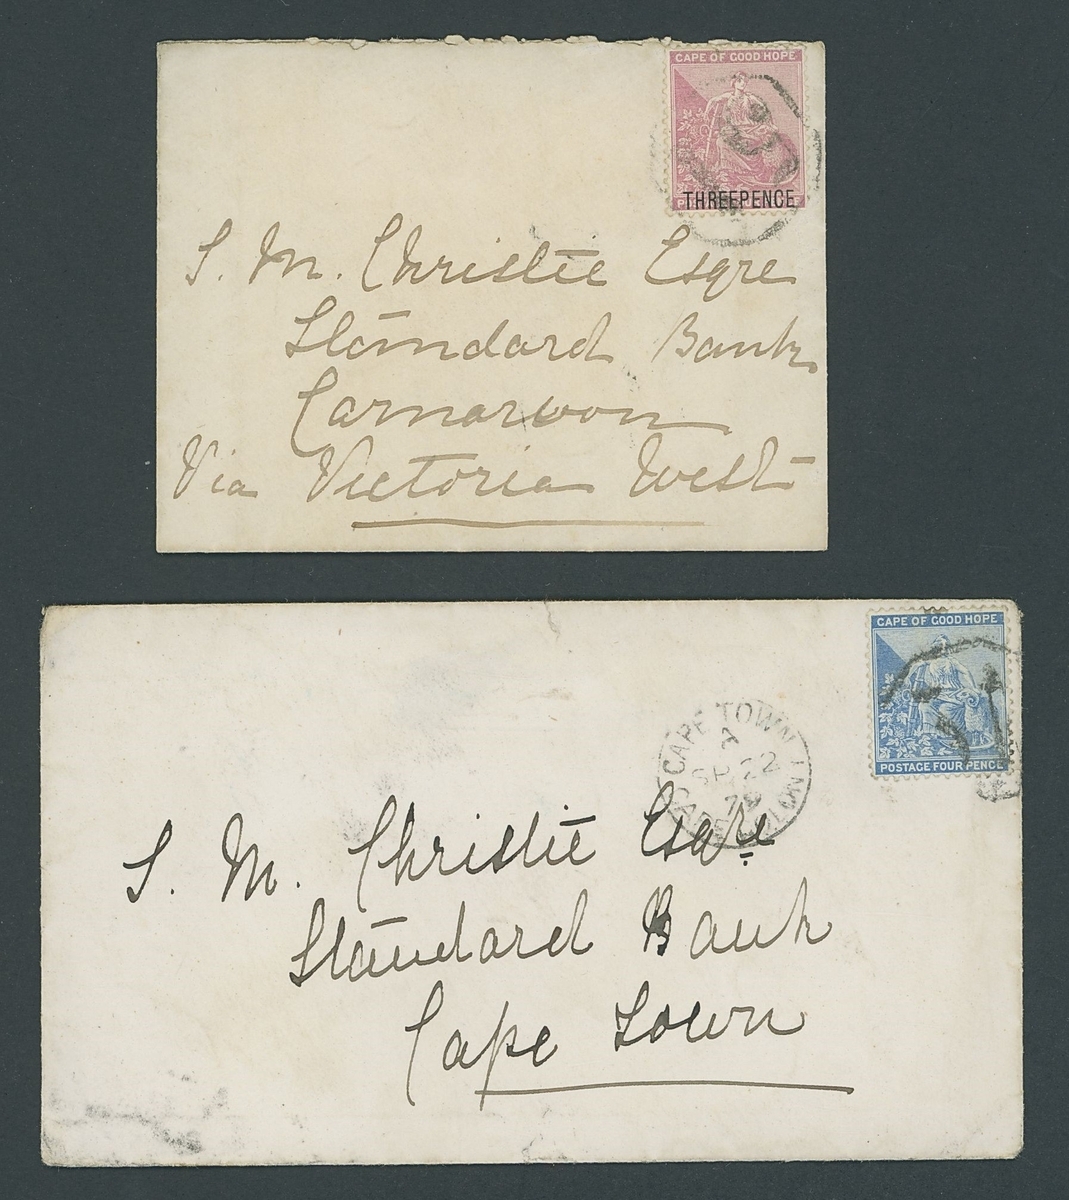 CAPE OF GOOD HOPE
THREEPENCE
S. M. Christie Esqre
Standard Bank
Carnarvon
Via Victoria West
CAPE OF GOOD HOPE
POSTAGE FOUR PENCE
CAPE TOWN
A
SP 22
S. M. Christie Esqre
Standard Bank
Cape Town